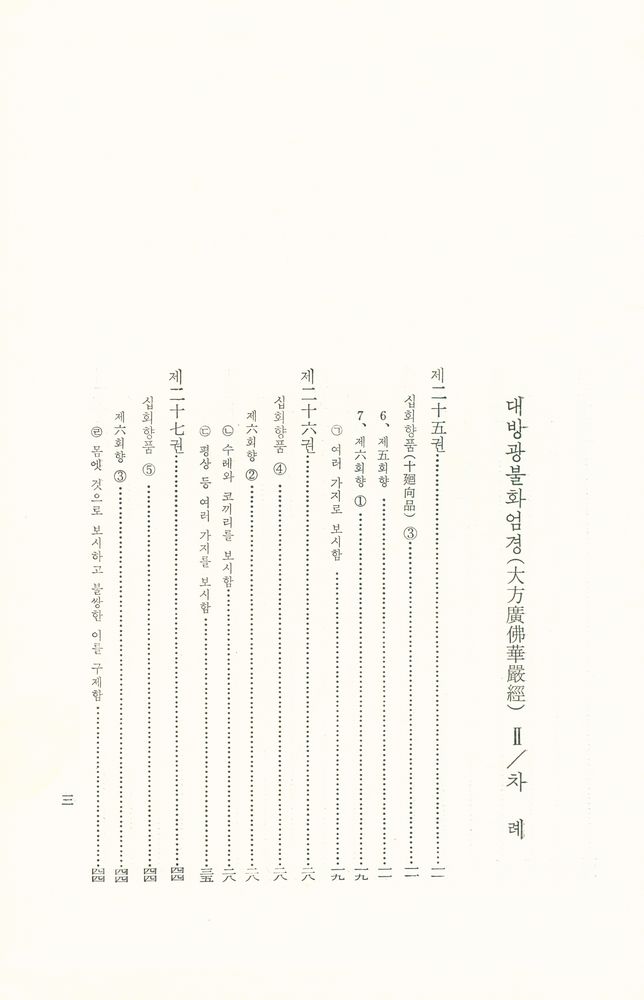 대방광불화엄경(大方廣佛華嚴經) Ⅱ／차 례
제二十五권……一一
십회향품(十廻向品) ③……一一
6、제五회향……一一
7、제六회향 ①……一九
㉠ 여러 가지로 보시함……一九
제二十六권……二八
십회향품 ④……二八
제六회향 ②……二八
㉡ 수레와 코끼리를 보시함……二八
㉢ 평상 등 여러 가지를 보시함……三五
제二十七권……四四
십회향품 ⑤……四四
제六회향 ③……四四
㉣ 몸엣 것으로 보시하고 불쌍한 이를 구제함……四四
三